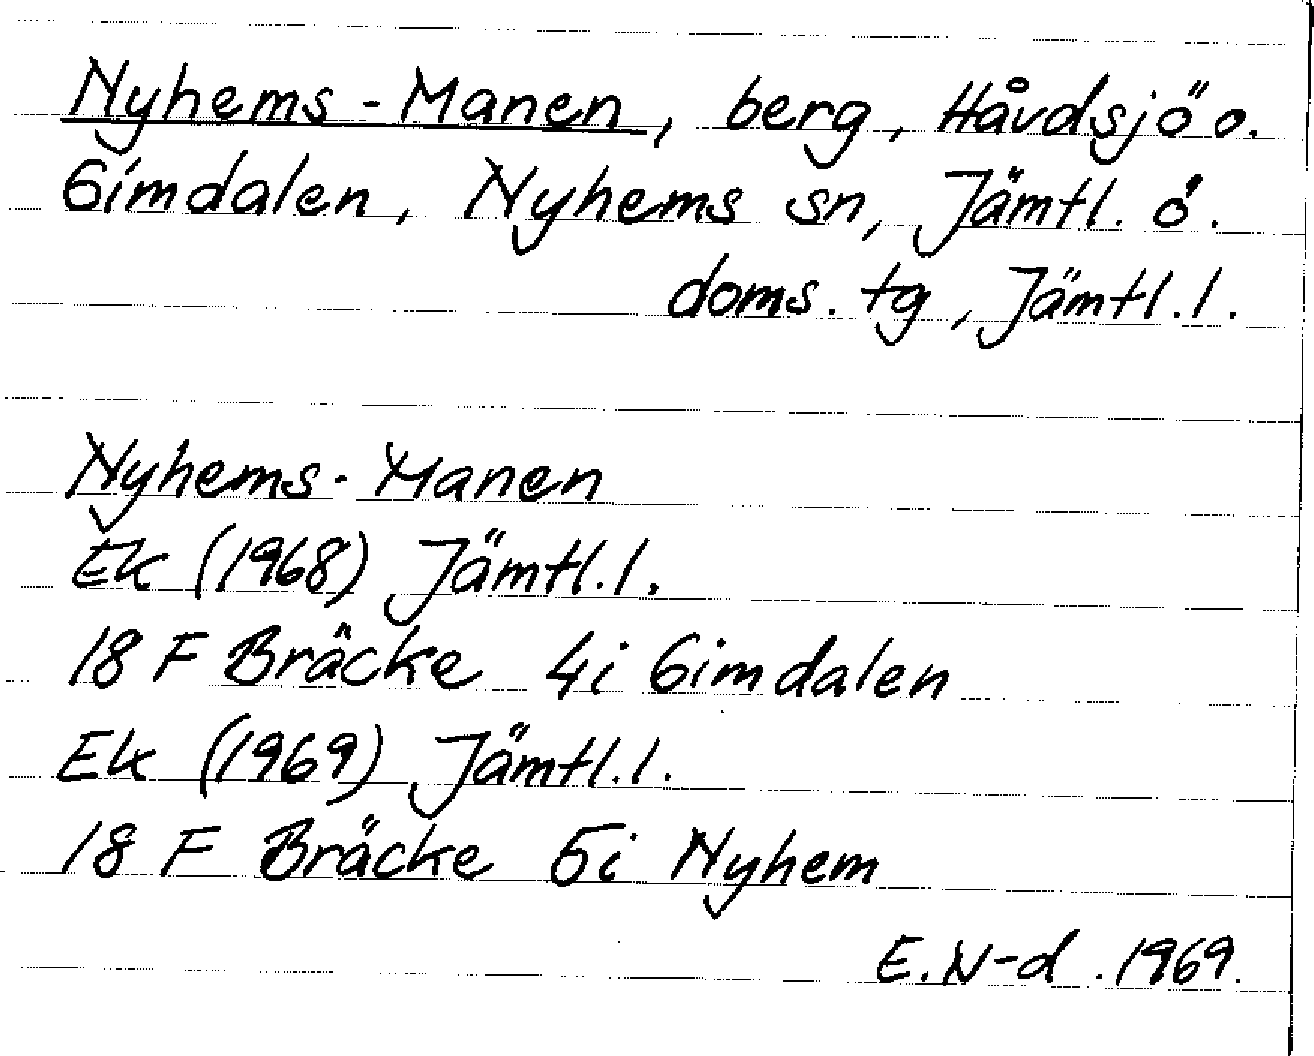 Nyhems-Manen, berg, Håvdsjö o.
Gimdalen, Nyhems sn, Jämtl. ö.
doms. tg, Jämtl. l.
Nyhems-Manen
Ek (1968) Jämtl. l.
18 F Bräcke 4i Gimdalen
Ek (1969) Jämtl. l.
18 F Bräcke 5i Nyhem
E. N-d. 1969.